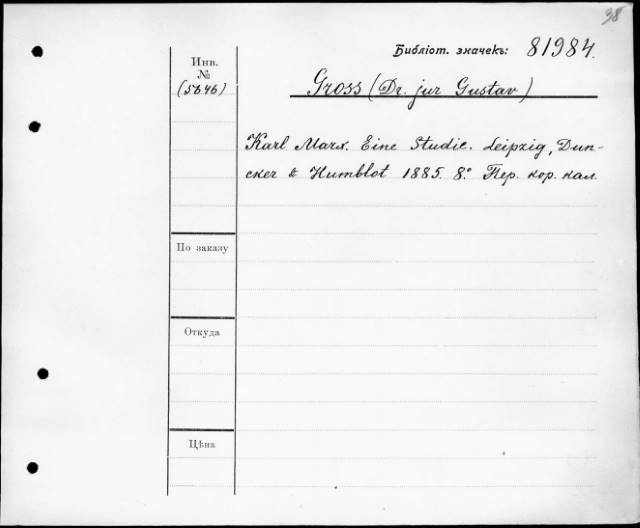 38
Библіот. значекъ: 81984.
Инв.
№
(5846)
Gross (Dr. jur Gustav)
Karl Marx. Eine Studie. Leipzig, Dun-
cker & Humblot 1885. 8.° Пер. кор. кал.
По заказу
Откуда
Цѣна